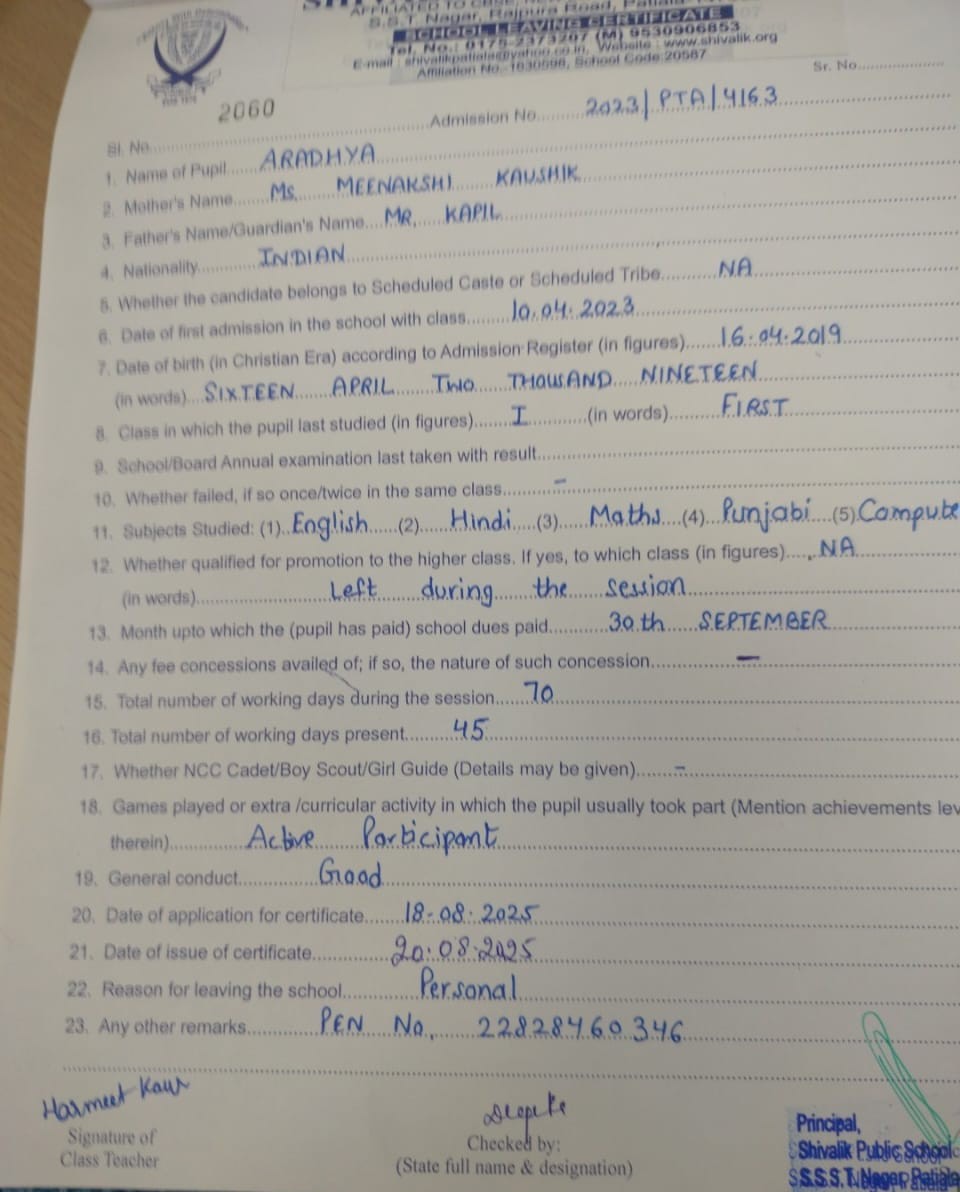 AFFILIATED TO CBSE, NEW
S.S.T. Nagar, Rajpura Road, Patiala
SCHOOL LEAVING CERTIFICATE
Tel. No.: 0175-2373207 (M) 9530906853
E-mail : shivalikpatiala@yahoo.co.in, Website : www.shivalik.org
Affiliation No. 1630598, School Code 20587
Sr. No.
2060
Sl. No. Admission No. 2023/PTA/4163
1. Name of Pupil ARADHYA
2. Mother's Name Ms. MEENAKSHI KAUSHIK
3. Father's Name/Guardian's Name MR. KAPIL
4. Nationality INDIAN
5. Whether the candidate belongs to Scheduled Caste or Scheduled Tribe NA
6. Date of first admission in the school with class 10.04.2023
7. Date of birth (in Christian Era) according to Admission Register (in figures) 16.04.2019
(in words) SIXTEEN APRIL TWO THOUSAND NINETEEN
8. Class in which the pupil last studied (in figures) I (in words) FIRST
9. School/Board Annual examination last taken with result
10. Whether failed, if so once/twice in the same class –
11. Subjects Studied: (1) English (2) Hindi (3) Maths (4) Punjabi (5) Compute
12. Whether qualified for promotion to the higher class. If yes, to which class (in figures) NA
(in words) Left during the session
13. Month upto which the (pupil has paid) school dues paid 30th SEPTEMBER
14. Any fee concessions availed of; if so, the nature of such concession –
15. Total number of working days during the session 70
16. Total number of working days present 45
17. Whether NCC Cadet/Boy Scout/Girl Guide (Details may be given) –
18. Games played or extra /curricular activity in which the pupil usually took part (Mention achievements lev
therein) Active Participant
19. General conduct Good
20. Date of application for certificate 18-08-2025
21. Date of issue of certificate 20.08.2025
22. Reason for leaving the school Personal
23. Any other remarks PEN No. 22828460346
Harmeet Kaur
Signature of
Class Teacher
Checked by:
(State full name & designation)
Principal,
Shivalik Public School
S.S.T. Nagar, Patiala